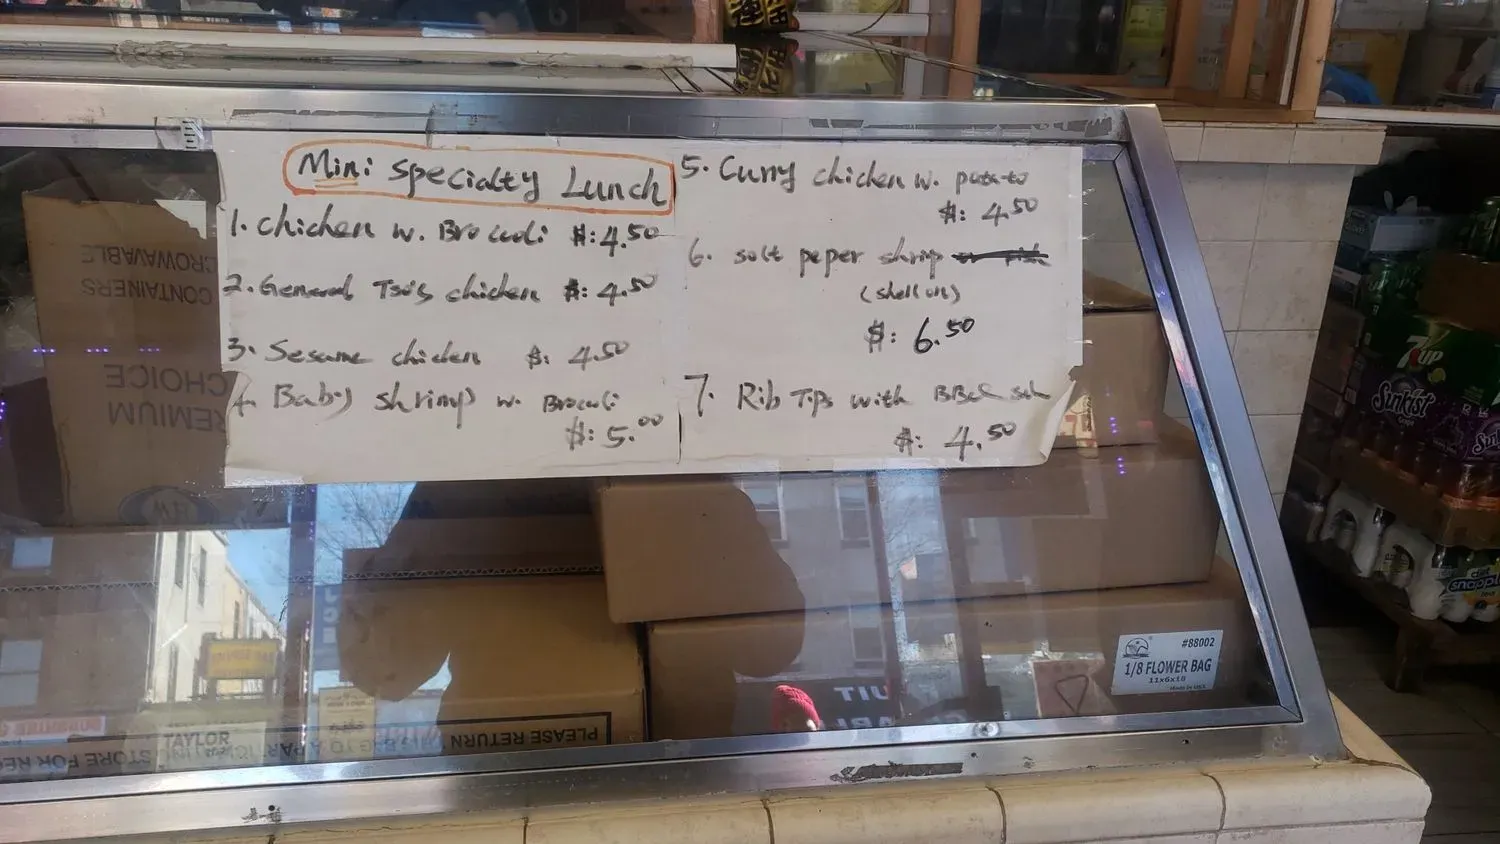 Mini Specialty Lunch
1. Chicken w. Broccoli $: 4.50
2. General Tso's chicken $: 4.50
3. Sesame chicken $: 4.50
4. Baby shrimp w. Broccoli
$: 5.00
5. Curry chicken w. potato
$: 4.50
6. solt peper shrimp
(shell on)
$: 6.50
7. Rib Tips with BBQ
$: 4.50
CROWAVABLE
CONTAINERS
CHOICE
PREMIUM
7up
Sunkist
diet
Snapple
#88002
1/8 FLOWER BAG
11x6x18
Made in USA
TAYLOR
PLEASE RETURN
STORE FOR